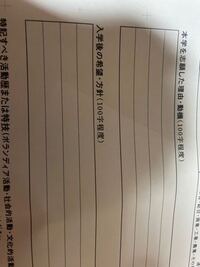 本学を志願した理由・動機(100字程度)
入学後の希望・方針(100字程度)
特記すべき活動歴または特技(ボランティア活動・社会的活動・文化的活動